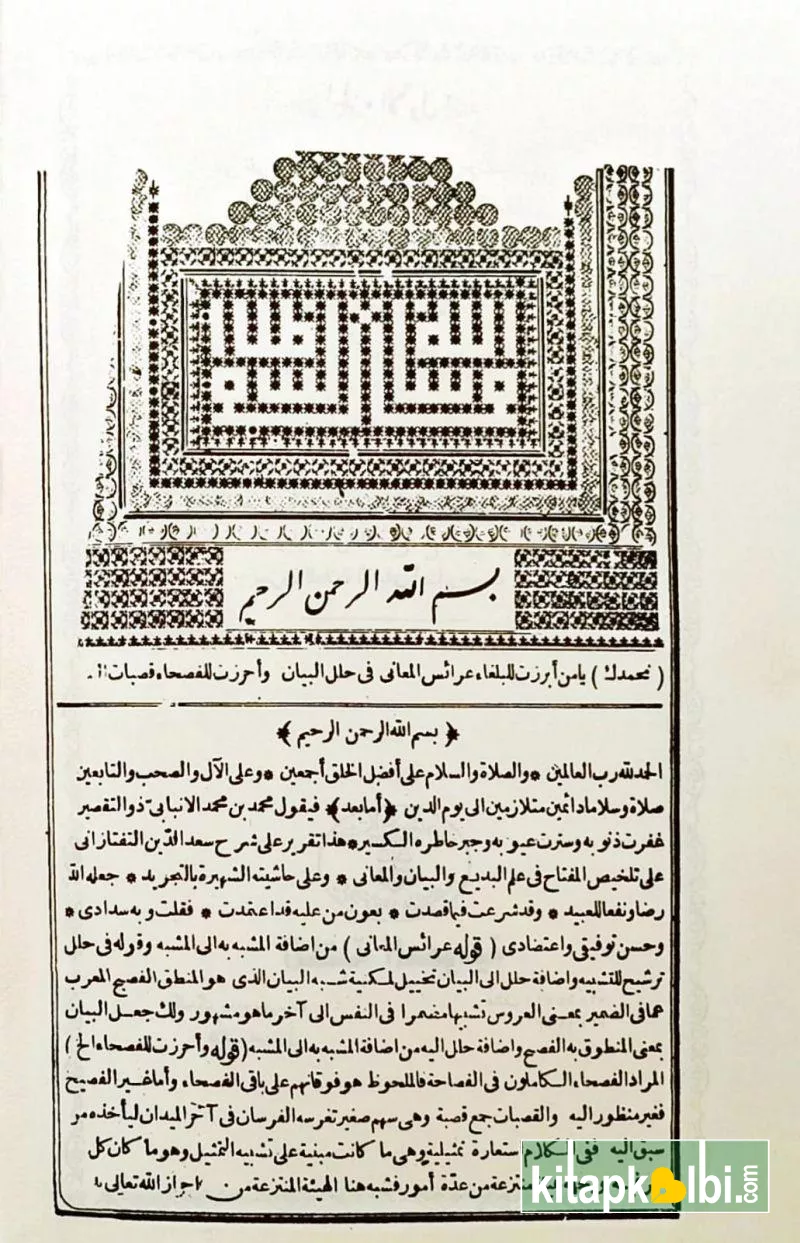 بسم الله الرحمن الرحيم
( نحمدك ) يا من أبرزت للبلغاء عرائس المعانى فى حلل البيان وأحرزت للفصحاء قصبات
﴿ بسم الله الرحمن الرحيم ﴾
الحمد لله رب العالمين * والصلاة والسلام على أفضل الخلق أجمعين * وعلى الآل والصحب والتابعين
صلاة وسلاما دائمين متلازمين الى يوم الدين ﴿ أما بعد ﴾ فيقول محمد بن محمد الانبابىّ ذو التقصير
غفرت ذنوبه وسترت عيوبه وجبر خاطره الكسير * هذا تقرير على شرح سعد الدّين التفتازانى
على تلخيص المفتاح فى علم البديع والبيان والمعانى * وعلى حاشيته الشهيرة بالتجريد * جعله الله
رضا ونفعا للعبيد * وقد شرعت فيما قصدت * بعون من عليه قد اعتمدت * فقلت وبه سدادى *
وحسن توفيقى واعتضادى ( قوله عرائس المعانى ) من اضافة المشبه به الى المشبه وقوله فى حلل
ترشيح للتشبيه واضافة حلل الى البيان تخييل لمكنية شبه البيان الذى هو المنطق الفصيح المعرب
عما فى الضمير بمعنى العروس تشبيها مضمرا فى النفس الى آخر ما هو مشهور ولك جعل البيان
بمعنى المنطوق به الفصيح واضافة حلل اليه من اضافة المشبه به الى المشبه ( قوله وأحرزت للفصحاء الخ )
المراد الفصحاء الكاملون فى الفصاحة فالملحوظ هو فوقانهم على باقى الفصحاء وأما غير الفصيح
فغير منظور اليه والقصبات جمع قصبة وهى سهم صغير تغرسه الفرسان فى آخر الميدان ليأخذه من
سبق اليه ففى الكلام استعارة تمثيلية وهى ما كانت مبنية على تشبيه التمثيل وهو ما كان كل
منتزعة من عدّة أمور فشبه هنا الهيئة المنتزعة من احراز الله تعالى
kitapkalbi.com